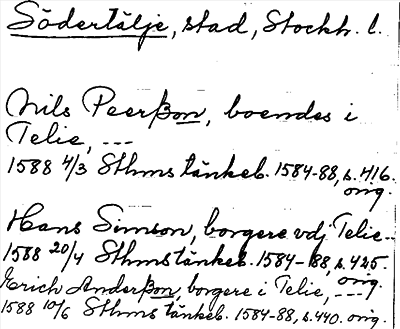 Södertälje, stad, Stockh. l.
Nils Peerßon, boendes i
Telie, ---
1588 4/3 Sthms tänkeb. 1584-88, s. 416.
orig.
Hans Simson, borgere vdj Telie --
1588 20/4 Sthms tänkeb. 1584-88, s. 425.
orig.
Erich Anderßon, borgere i Telie, ---
1588 10/6 Sthms tänkeb. 1584-88, s. 440. orig.